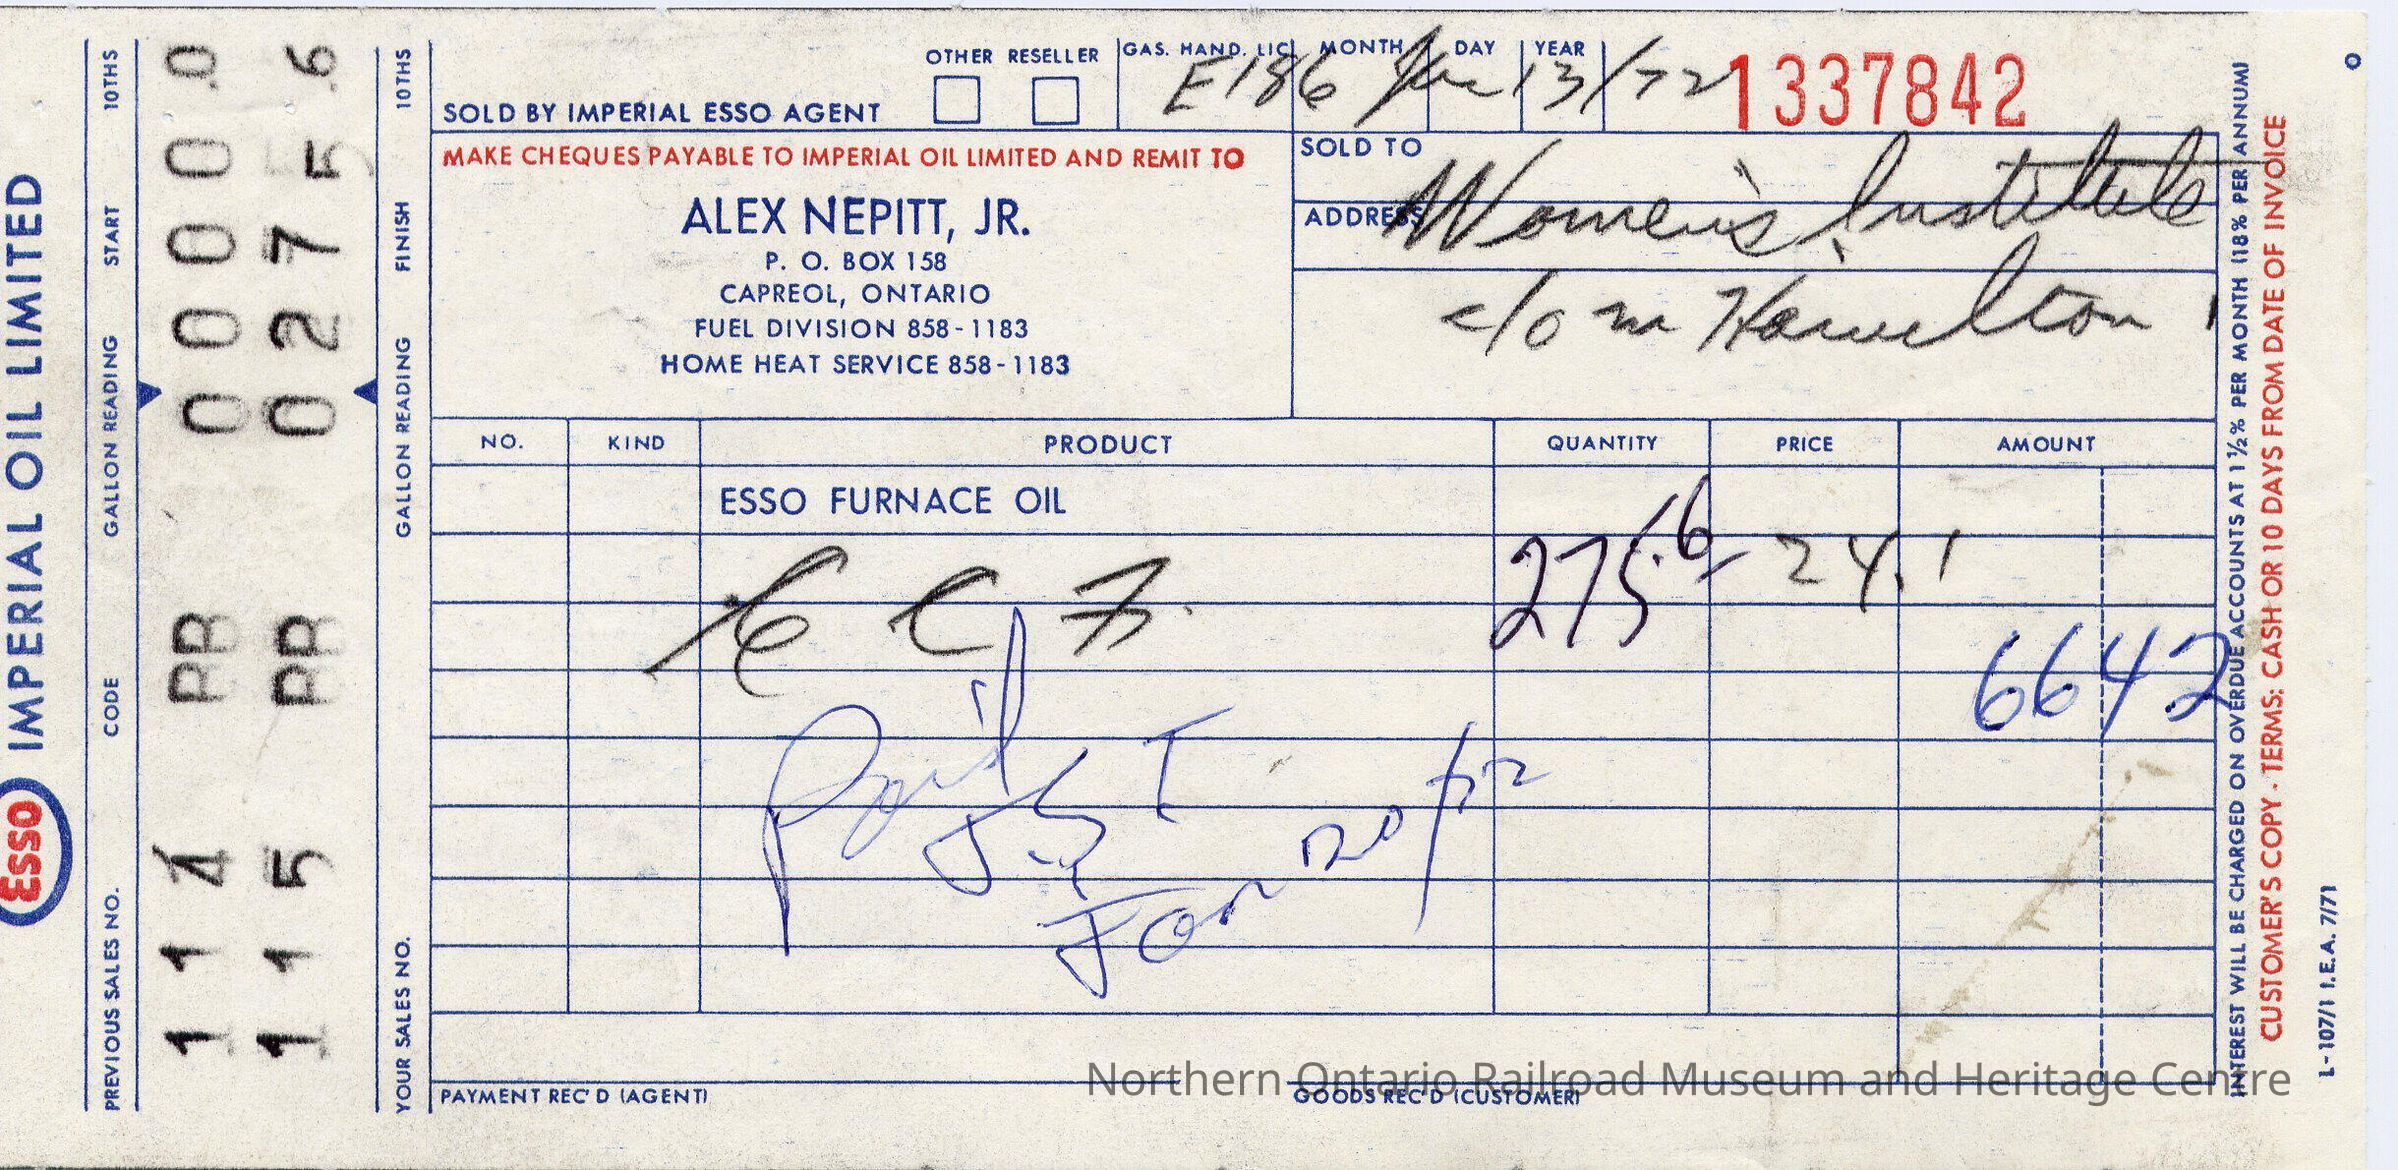 ESSO IMPERIAL OIL LIMITED
PREVIOUS SALES NO. CODE GALLON READING START 10THS
114 PB 0000.0
115 PB 0275.6
YOUR SALES NO. GALLON READING FINISH 10THS
OTHER RESELLER GAS. HAND. LIC. MONTH DAY YEAR
SOLD BY IMPERIAL ESSO AGENT E186 13/72 1337842
MAKE CHEQUES PAYABLE TO IMPERIAL OIL LIMITED AND REMIT TO
ALEX NEPITT, JR.
P. O. BOX 158
CAPREOL, ONTARIO
FUEL DIVISION 858-1183
HOME HEAT SERVICE 858-1183
SOLD TO
ADDRESS Women's Institute
c/o m Hamilton
NO. KIND PRODUCT QUANTITY PRICE AMOUNT
ESSO FURNACE OIL
275.6 24.1
6642
Paid
Jan 20/72
PAYMENT REC'D (AGENT) GOODS REC'D (CUSTOMER)
INTEREST WILL BE CHARGED ON OVERDUE ACCOUNTS AT 1½% PER MONTH (18% PER ANNUM)
CUSTOMER'S COPY - TERMS: CASH OR 10 DAYS FROM DATE OF INVOICE
L-107/1 I.E.A. 7/71
Northern Ontario Railroad Museum and Heritage Centre